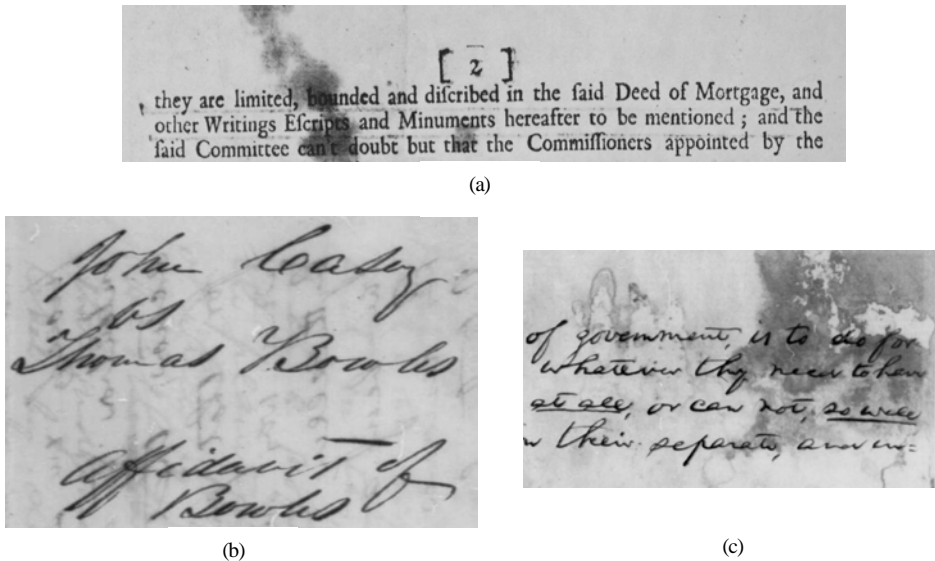 [ 2 ]
they are limited, bounded and diſcribed in the ſaid Deed of Mortgage, and
other Writings Eſcripts and Minuments hereafter to be mentioned ; and the
ſaid Committee can't doubt but that the Commiſſioners appointed by the
(a)
John Casey
vs
Thomas Bowles
Affidavit of
Bowles
(b)
of government, is to do for
whatever they need to have
at all, or can not, so well
in their separate, and in=
(c)